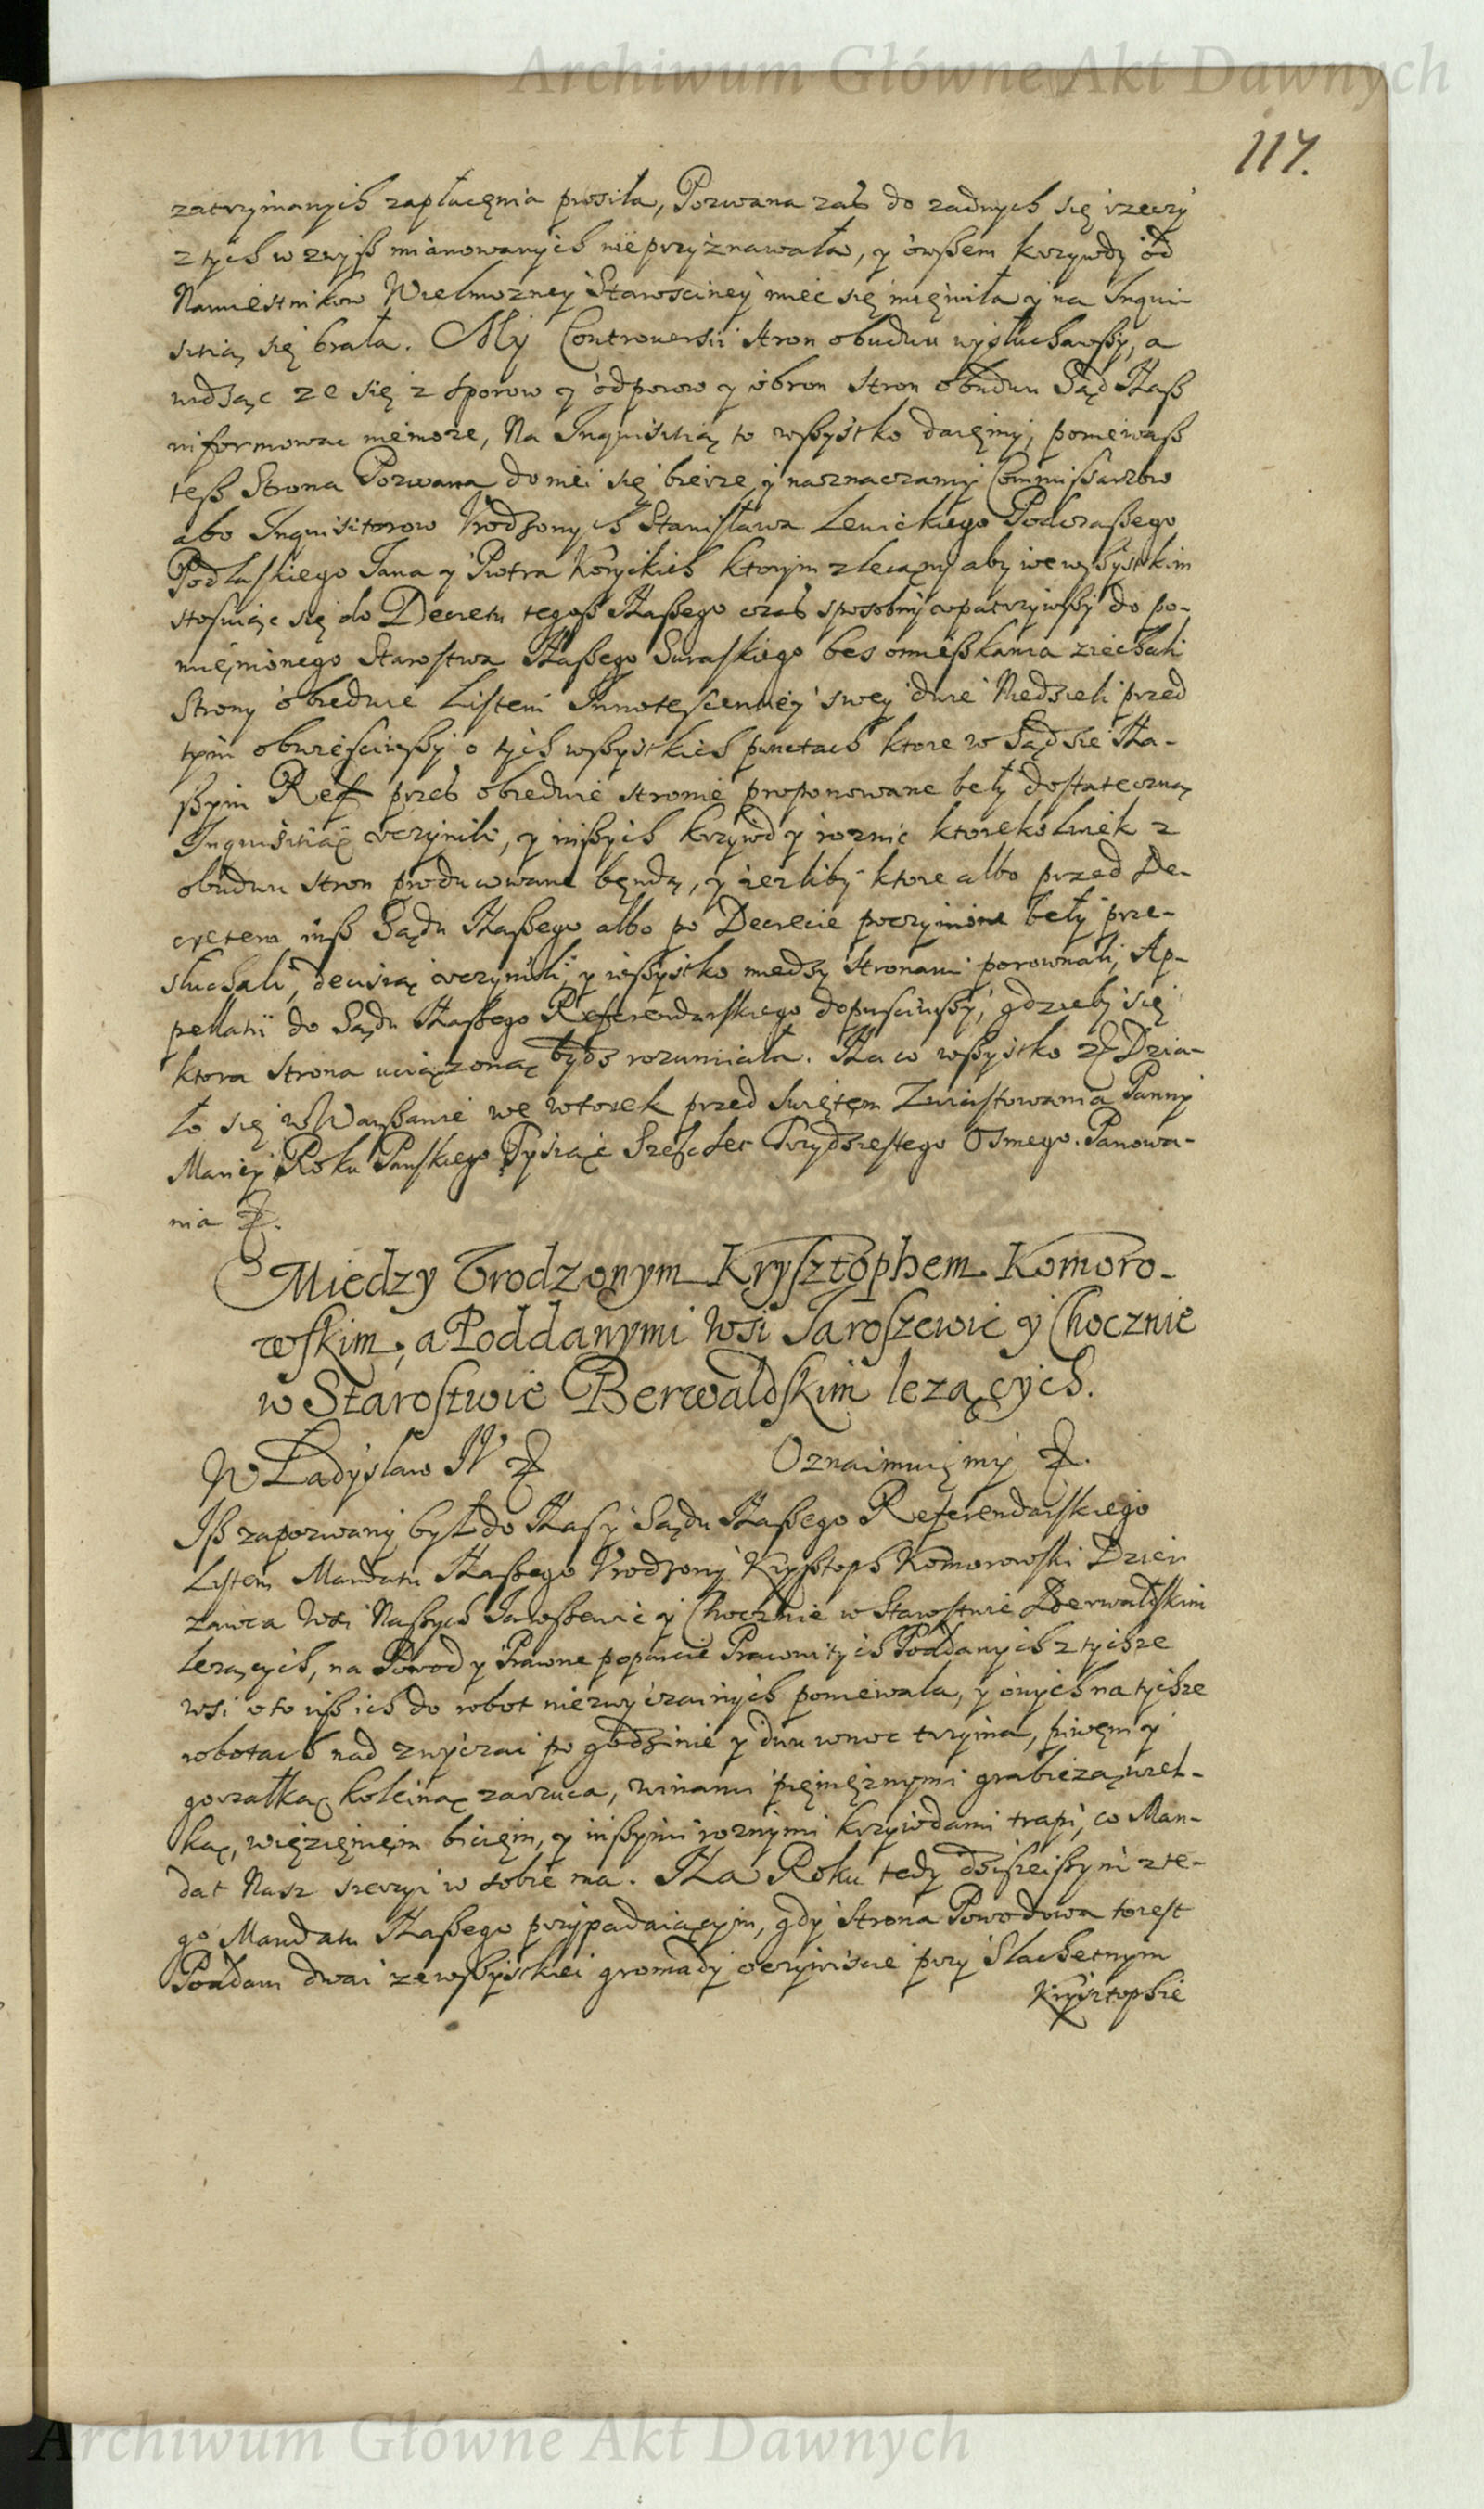 Archiwum Główne Akt Dawnych
117.
zatrzymanych zapłacęnia prosiła, Pozwana zaś do zadnych się rzeczy
z tych wzwyß mianowanych nieprzyznawała, y owßem krzywdy od
Namiestnikow Wielmozney Starosciney mieć się mięniła y na Inqui-
sitią się brała. My Controuersii stron obudwu wysłuchawßy, a
widząc ze się z sporow y odporow y obron stron obudwu Sąd Naß
informowac niemoze, Na Inquisitią to wßystko daięmy, poniewaß
teß Strona Pozwana do niei się bierze, y naznaczamy Commißarzow
abo Inquisitorow Vrodzonych Stanisława Lewickiego Podczaßego
Podlaskiego Jana y Piotra Koryckich ktorym zlecamy aby we wßystkim
stosuiąc się do Decretu tegoß Naßego czas sposobny vpatrzywßy do po-
mięnionego Starostwa Naßego Suraskiego bes omießkania ziechali
Strony obiedwie Listem Innotescentiey swey dwie Niedzieli przed
tym obwieściwßy o tych wßystkich punctach ktore w Sądzie Na-
ßym Ref przes obiedwie stronie proponowane beły dostateczną
Inquisitią vczynili, y inßych krzywd y roznic ktorekolwiek z
obudwu stron producowane będą, y iezliby ktore albo przed De-
cretem inß Sądu Naßego albo po Decrecie poczynione beły prze-
słuchali, decisią vczynili, y wßystko miedzy Stronami porownali, Ap-
pellatii do Sądu Naßego Referendarskiego dopusciwßy, gdzieby się
ktora strona vciązoną bydz rozumiała. Na co wßystko &. Dzia-
ło się w Warßawie we wtorek przed Swiętem Zwiastowania Panny
Mariey Roku Panskiego Tysiąc Szescset Trzydziestego Osmego. Panowa-
nia &.
Miedzy Vrodzonym Krysztophem Komoro-
wskim, a Poddanymi Wsi Jaroszewic y Chocznie
w Starostwie Berwaldskim lezących.
Władysław IV & Oznaimuięmy &.
Iß zapozwany był do Nas y Sądu Naßego Referendarskiego
Listem Mandatu Naßego Vrodzony Kryßtoph Komorowski Dzier
zawca Wsi Naßych Jaroßewic y Chocznie w Starostwie Berwaldskim
lezących, na Powod y Prawne poparcie Pracowitych Poddanych z tychze
wsi o to iß ich do robot niezwyczainych poniewala, y onych na tychze
robotach nad zwyczai po godzinie y dwu w noc trzyma, piwęm y
gorzałką koleiną zarzuca, winami pięnięznymi grabiezą wiel-
ką, więzięnięm bicięm, y inßymi roznymi krzywdami trapi, co Man-
dat Nasz szerzyi w sobie ma. Na Roku tedy dzisieißym z te-
go Mandatu Naßego przypadaiącym, gdy Strona Powodowa to iest
Poddani dwai ze wßystkiei gromady oczywiscie przy Slachetnym
Krysztophie
Archiwum Główne Akt Dawnych